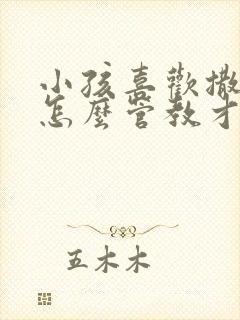 小孩喜歡撒
怎麼管教才
五木木